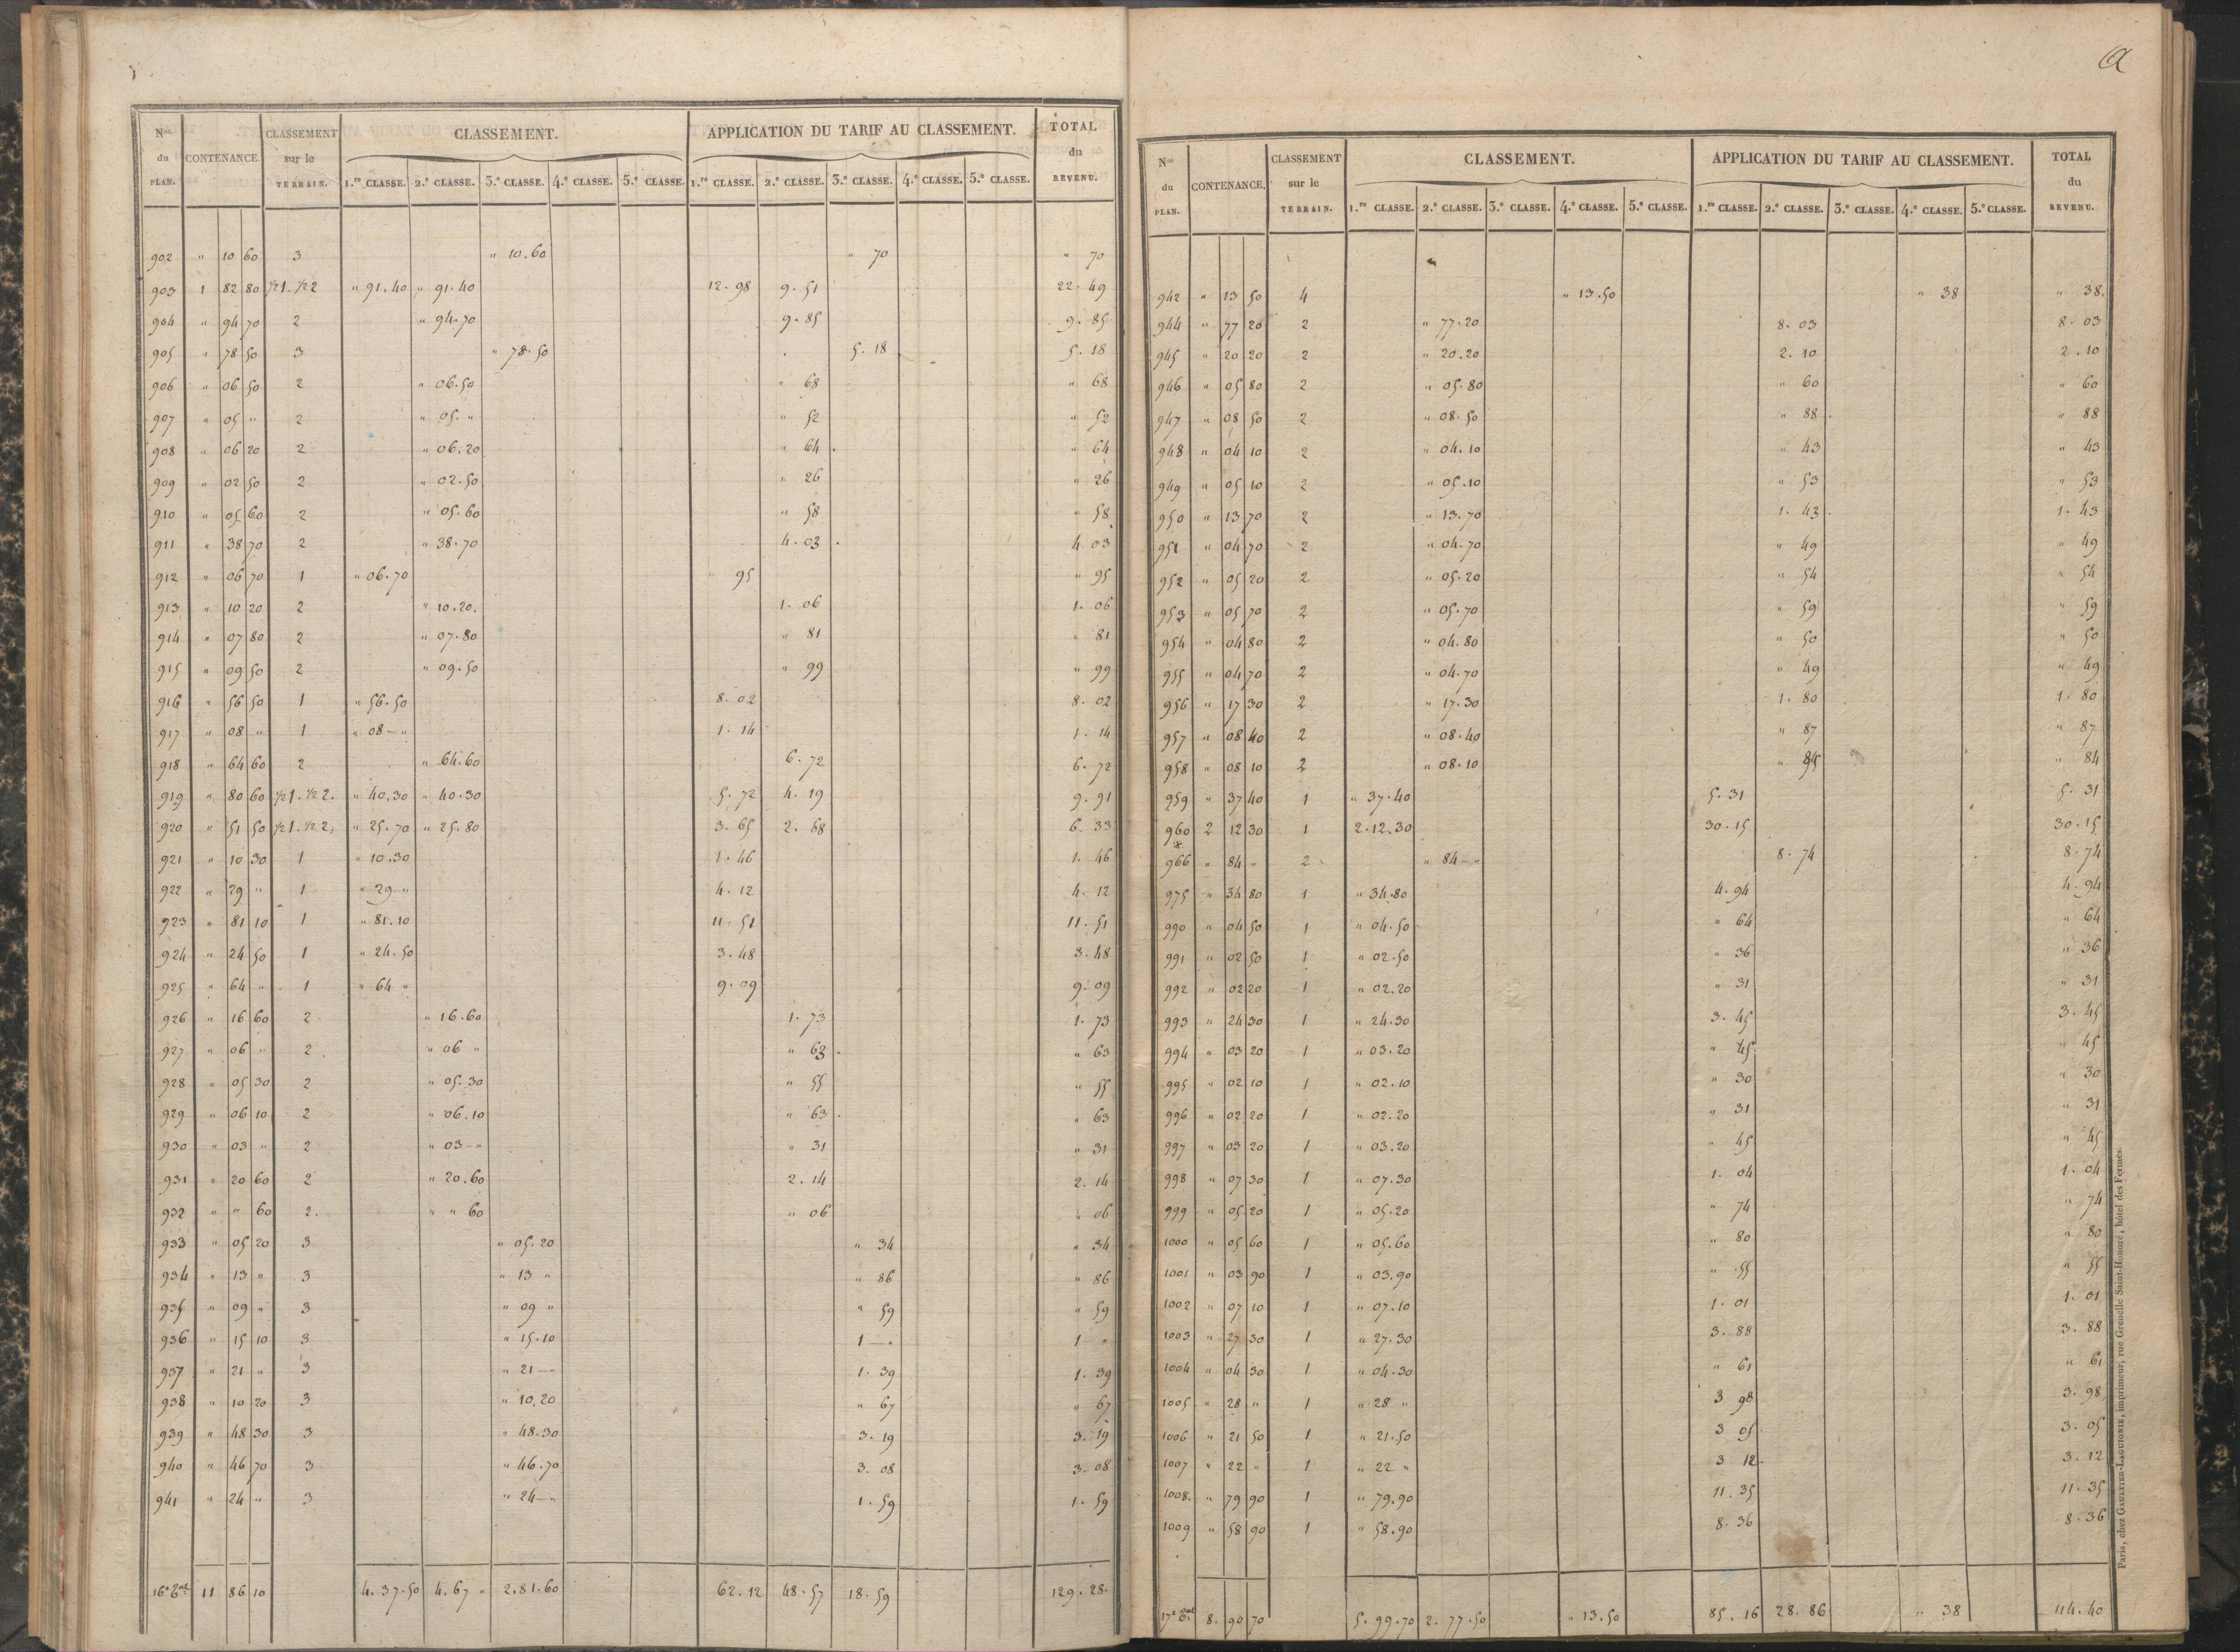 Nos du PLAN. CONTENANCE. CLASSEMENT sur le TERRAIN. CLASSEMENT. APPLICATION DU TARIF AU CLASSEMENT. TOTAL du REVENU.
1.re CLASSE. 2.e CLASSE. 3.e CLASSE. 4.e CLASSE. 5.e CLASSE. 1.re CLASSE. 2.e CLASSE. 3.e CLASSE. 4.e CLASSE. 5.e CLASSE.
902 " 10 60 3 " 10.60 " 70 " 70
903 1 82 80 1/2 1. 1/2 2 " 91.40 " 91.40 12. 98 9. 51 22. 49
904 " 94 70 2 " 94.70 9. 85 9. 85
905 " 78 50 3 " 78.50 5. 18 5. 18
906 " 06 50 2 " 06.50 " 68 " 68
907 " 05 " 2 " 05. " " 52 " 52
908 " 06 20 2 " 06.20 " 64 " 64
909 " 02 50 2 " 02.50 " 26 " 26
910 " 05 60 2 " 05.60 " 58 " 58
911 " 38 70 2 " 38.70 4. 03 4. 03
912 " 06 70 1 " 06.70 " 95 " 95
913 " 10 20 2 " 10.20. 1. 06 1. 06
914 " 07 80 2 " 07.80 " 81 " 81
915 " 09 50 2 " 09.50 " 99 " 99
916 " 56 50 1 " 56.50 8. 02 8. 02
917 " 08 " 1 " 08 — " 1. 14 1. 14
918 " 64 60 2 " 64.60 6. 72 6. 72
919 " 80 60 1/2 1. 1/2 2. " 40.30 " 40.30 5. 72 4. 19 9. 91
920 " 51 50 1/2 1. 1/2 2. " 25.70 " 25.80 3. 65 2. 68 6. 33
921 " 10 30 1 " 10.30 1. 46 1. 46
922 " 29 " 1 " 29 " 4. 12 4. 12
923 " 81 10 1 " 81.10 11. 51 11. 51
924 " 24 50 1 " 24.50 3. 48 3. 48
925 " 64 " 1 " 64 " 9. 09 9. 09
926 " 16 60 2 " 16.60 1. 73 1. 73
927 " 06 " 2 " 06 " " 63 " 63
928 " 05 30 2 " 05.30 " 55 " 55
929 " 06 10 2 " 06.10 " 63 " 63
930 " 03 " 2 " 03 — " " 31 " 31
931 " 20 60 2 " 20.60 2. 14 2. 14
932 " " 60 2. " " 60 " 06 " 06
933 " 05 20 3 " 05.20 " 34 " 34
934 " 13 " 3 " 13 " " 86 " 86
935 " 09 " 3 " 09 " " 59 " 59
936 " 15 10 3 " 15.10 1 — " 1 — "
937 " 21 " 3 " 21 — " 1. 39 1. 39
938 " 10 20 3 " 10.20 " 67 " 67
939 " 48 30 3 " 48.30 3. 19 3. 19
940 " 46 70 3 " 46.70 3. 08 3. 08
941 " 24 " 3 " 24 — " 1. 59 1. 59
16e Cal 11 86 10 4. 37.50 4. 67 " 2.81.60 62. 12 48. 57 18. 59 129. 28.
a
Nos du PLAN. CONTENANCE. CLASSEMENT sur le TERRAIN. CLASSEMENT. APPLICATION DU TARIF AU CLASSEMENT. TOTAL du REVENU.
1.re CLASSE. 2.e CLASSE. 3.e CLASSE. 4.e CLASSE. 5.e CLASSE. 1.re CLASSE. 2.e CLASSE. 3.e CLASSE. 4.e CLASSE. 5.e CLASSE.
942 " 13 50 4 " 13.50 " 38 " 38.
944 " 77 20 2 " 77.20 8. 03 8. 03
945 " 20 20 2 " 20.20 2. 10 2. 10
946 " 05 80 2 " 05.80 " 60 " 60
947 " 08 50 2 " 08.50 " 88 " 88
948 " 04 10 2 " 04.10 " 43 " 43
949 " 05 10 2 " 05.10 " 53 " 53
950 " 13 70 2 " 13.70 1. 43 1. 43
951 " 04 70 2 " 04.70 " 49 " 49
952 " 05 20 2 " 05.20 " 54 " 54
953 " 05 70 2 " 05.70 " 59 " 59
954 " 04 80 2 " 04.80 " 50 " 50
955 " 04 70 2 " 04.70 " 49 " 49
956 " 17 30 2 " 17.30 1. 80 1. 80
957 " 08 40 2 " 08.40 " 87 " 87
958 " 08 10 2 " 08.10 " " 84
959 " 37 40 1 " 37.40 5. 31 5. 31
960 2 12 30 1 2.12.30 30. 15 30. 15
966 " 84 " 2 " 84 — " 8. 74 8. 74
975 " 34 80 1 " 34.80 4. 94 4. 94
990 " 04 50 1 " 04.50 " 64 " 64
991 " 02 50 1 " 02.50 " 36 " 36
992 " 02 20 1 " 02.20 " 31 " 31
993 " 24 30 1 " 24.30 3. 45 3. 45
994 " 03 20 1 " 03.20 " 45 " 45
995 " 02 10 1 " 02.10 " 30 " 30
996 " 02 20 1 " 02.20 " 31 " 31
997 " 03 20 1 " 03.20 " 45 " 45
998 " 07 30 1 " 07.30 1. 04 1. 04
999 " 05 20 1 " 05.20 " 74 " 74
1000 " 05 60 1 " 05.60 " 80 " 80
1001 " 03 90 1 " 03.90 " 55 " 55
1002 " 07 10 1 " 07.10 1. 01 1. 01
1003 " 27 30 1 " 27.30 3. 88 3. 88
1004 " 04 30 1 " 04.30 " 61 " 61
1005 " 28 " 1 " 28 " 3 98 3. 98
1006 " 21 50 1 " 21.50 3 05 3. 05
1007 " 22 " 1 " 22 " 3 12. 3. 12
1008. " 79 90 1 " 79.90 11. 35 11. 35
1009 " 58 90 1 " 58.90 8. 36 8. 36
17e Cal 8. 90 70 5. 99.70 2. 77.50 " 13.50 85. 16 28. 86 " 38 114. 40
Paris, chez GAULTIER-LAGUIONIE, imprimeur, rue Grenelle Saint-Honoré, hôtel des Fermes.